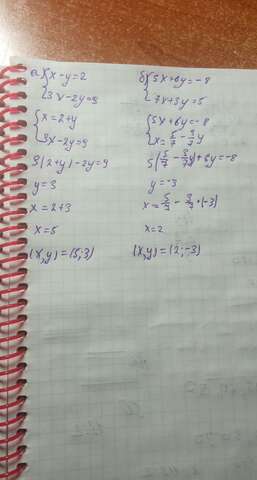 а) {x-y=2
{3x-2y=9
{x=2+y
{3x-2y=9
3(2+y)-2y=9
y=3
x=2+3
x=5
(x,y)=(5;3)
б) {5x+6y=-8
{7x+3y=5
{5x+6y=-8
{x=5/7-3/7y
5(5/7-3/7y)+6y=-8
y=-3
x=5/7-3/7*(-3)
x=2
(x,y)=(2;-3)